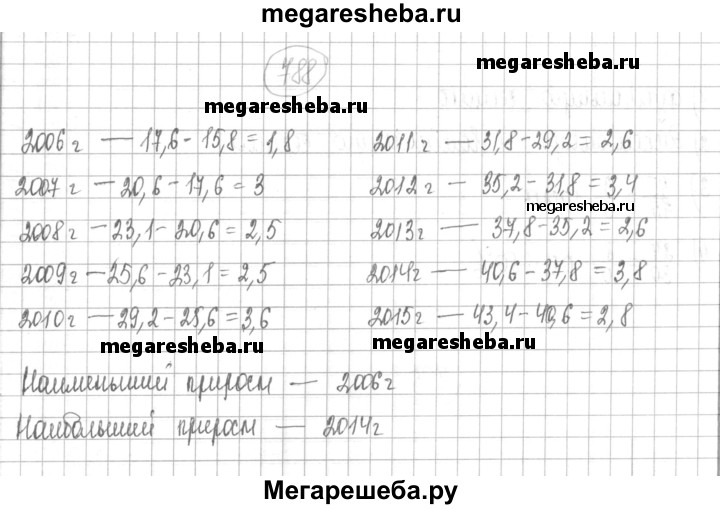 megaresheba.ru
788
megaresheba.ru
megaresheba.ru
2006 г — 17,6 - 15,8 = 1,8
2007 г — 20,6 - 17,6 = 3
2008 г — 23,1 - 20,6 = 2,5
2009 г — 25,6 - 23,1 = 2,5
2010 г — 29,2 - 25,6 = 3,6
2011 г — 31,8 - 29,2 = 2,6
2012 г — 35,2 - 31,8 = 3,4
megaresheba.ru
2013 г — 37,8 - 35,2 = 2,6
2014 г — 40,6 - 37,8 = 3,8
2015 г — 43,4 - 40,6 = 2,8
megaresheba.ru
megaresheba.ru
Наименьший прирост — 2006 г
Наибольший прирост — 2014 г
Мегарешеба.ру